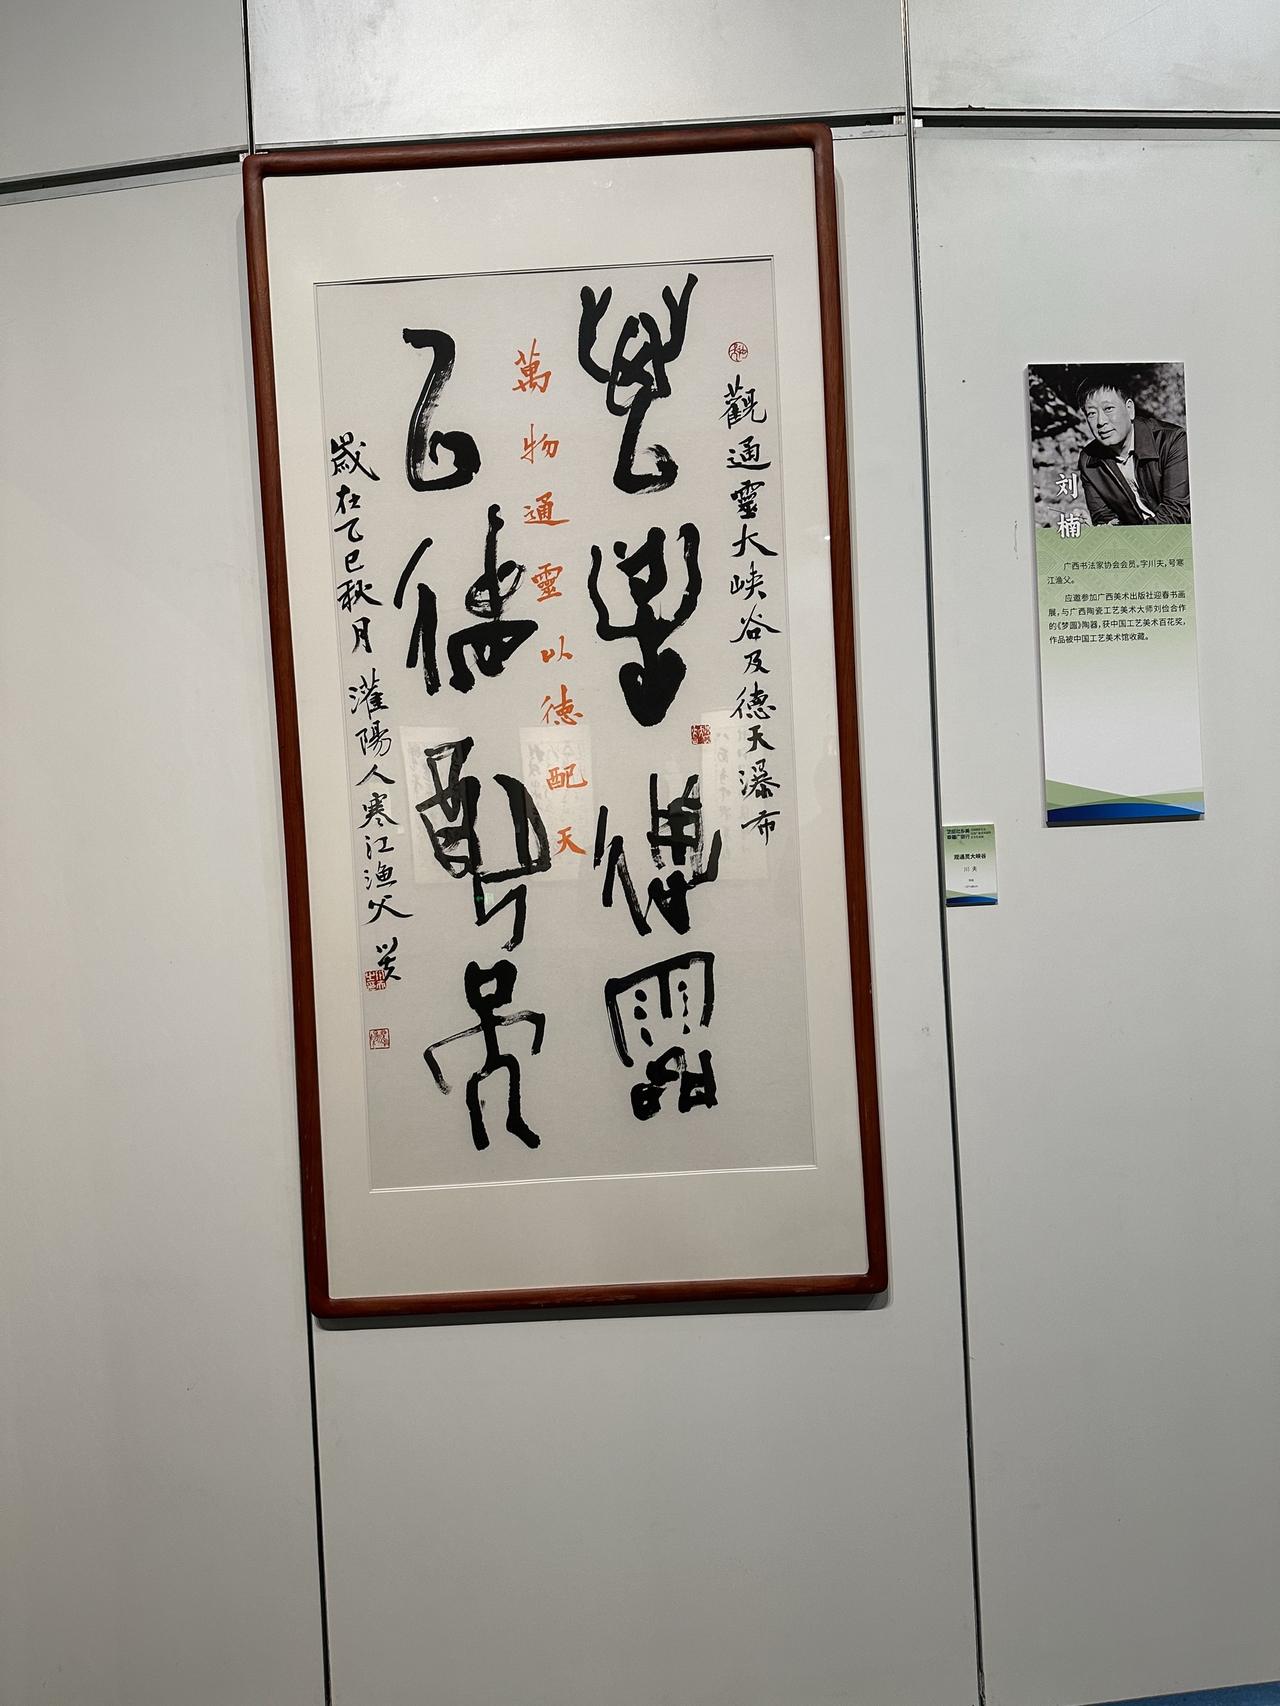 觀通靈大峽谷及德天瀑布
萬物通靈
以德配天
萬物通靈以德配天
歲在乙巳秋月 灌陽人寒江渔父
刘楠
广西书法家协会会员。字川夫，号寒
江渔父。
应邀参加广西美术出版社迎春书画
展，与广西陶瓷工艺美术大师刘俭合作
的《梦圆》陶器，获中国工艺美术百花奖，
作品被中国工艺美术馆收藏。
观通灵大峡谷
川 夫